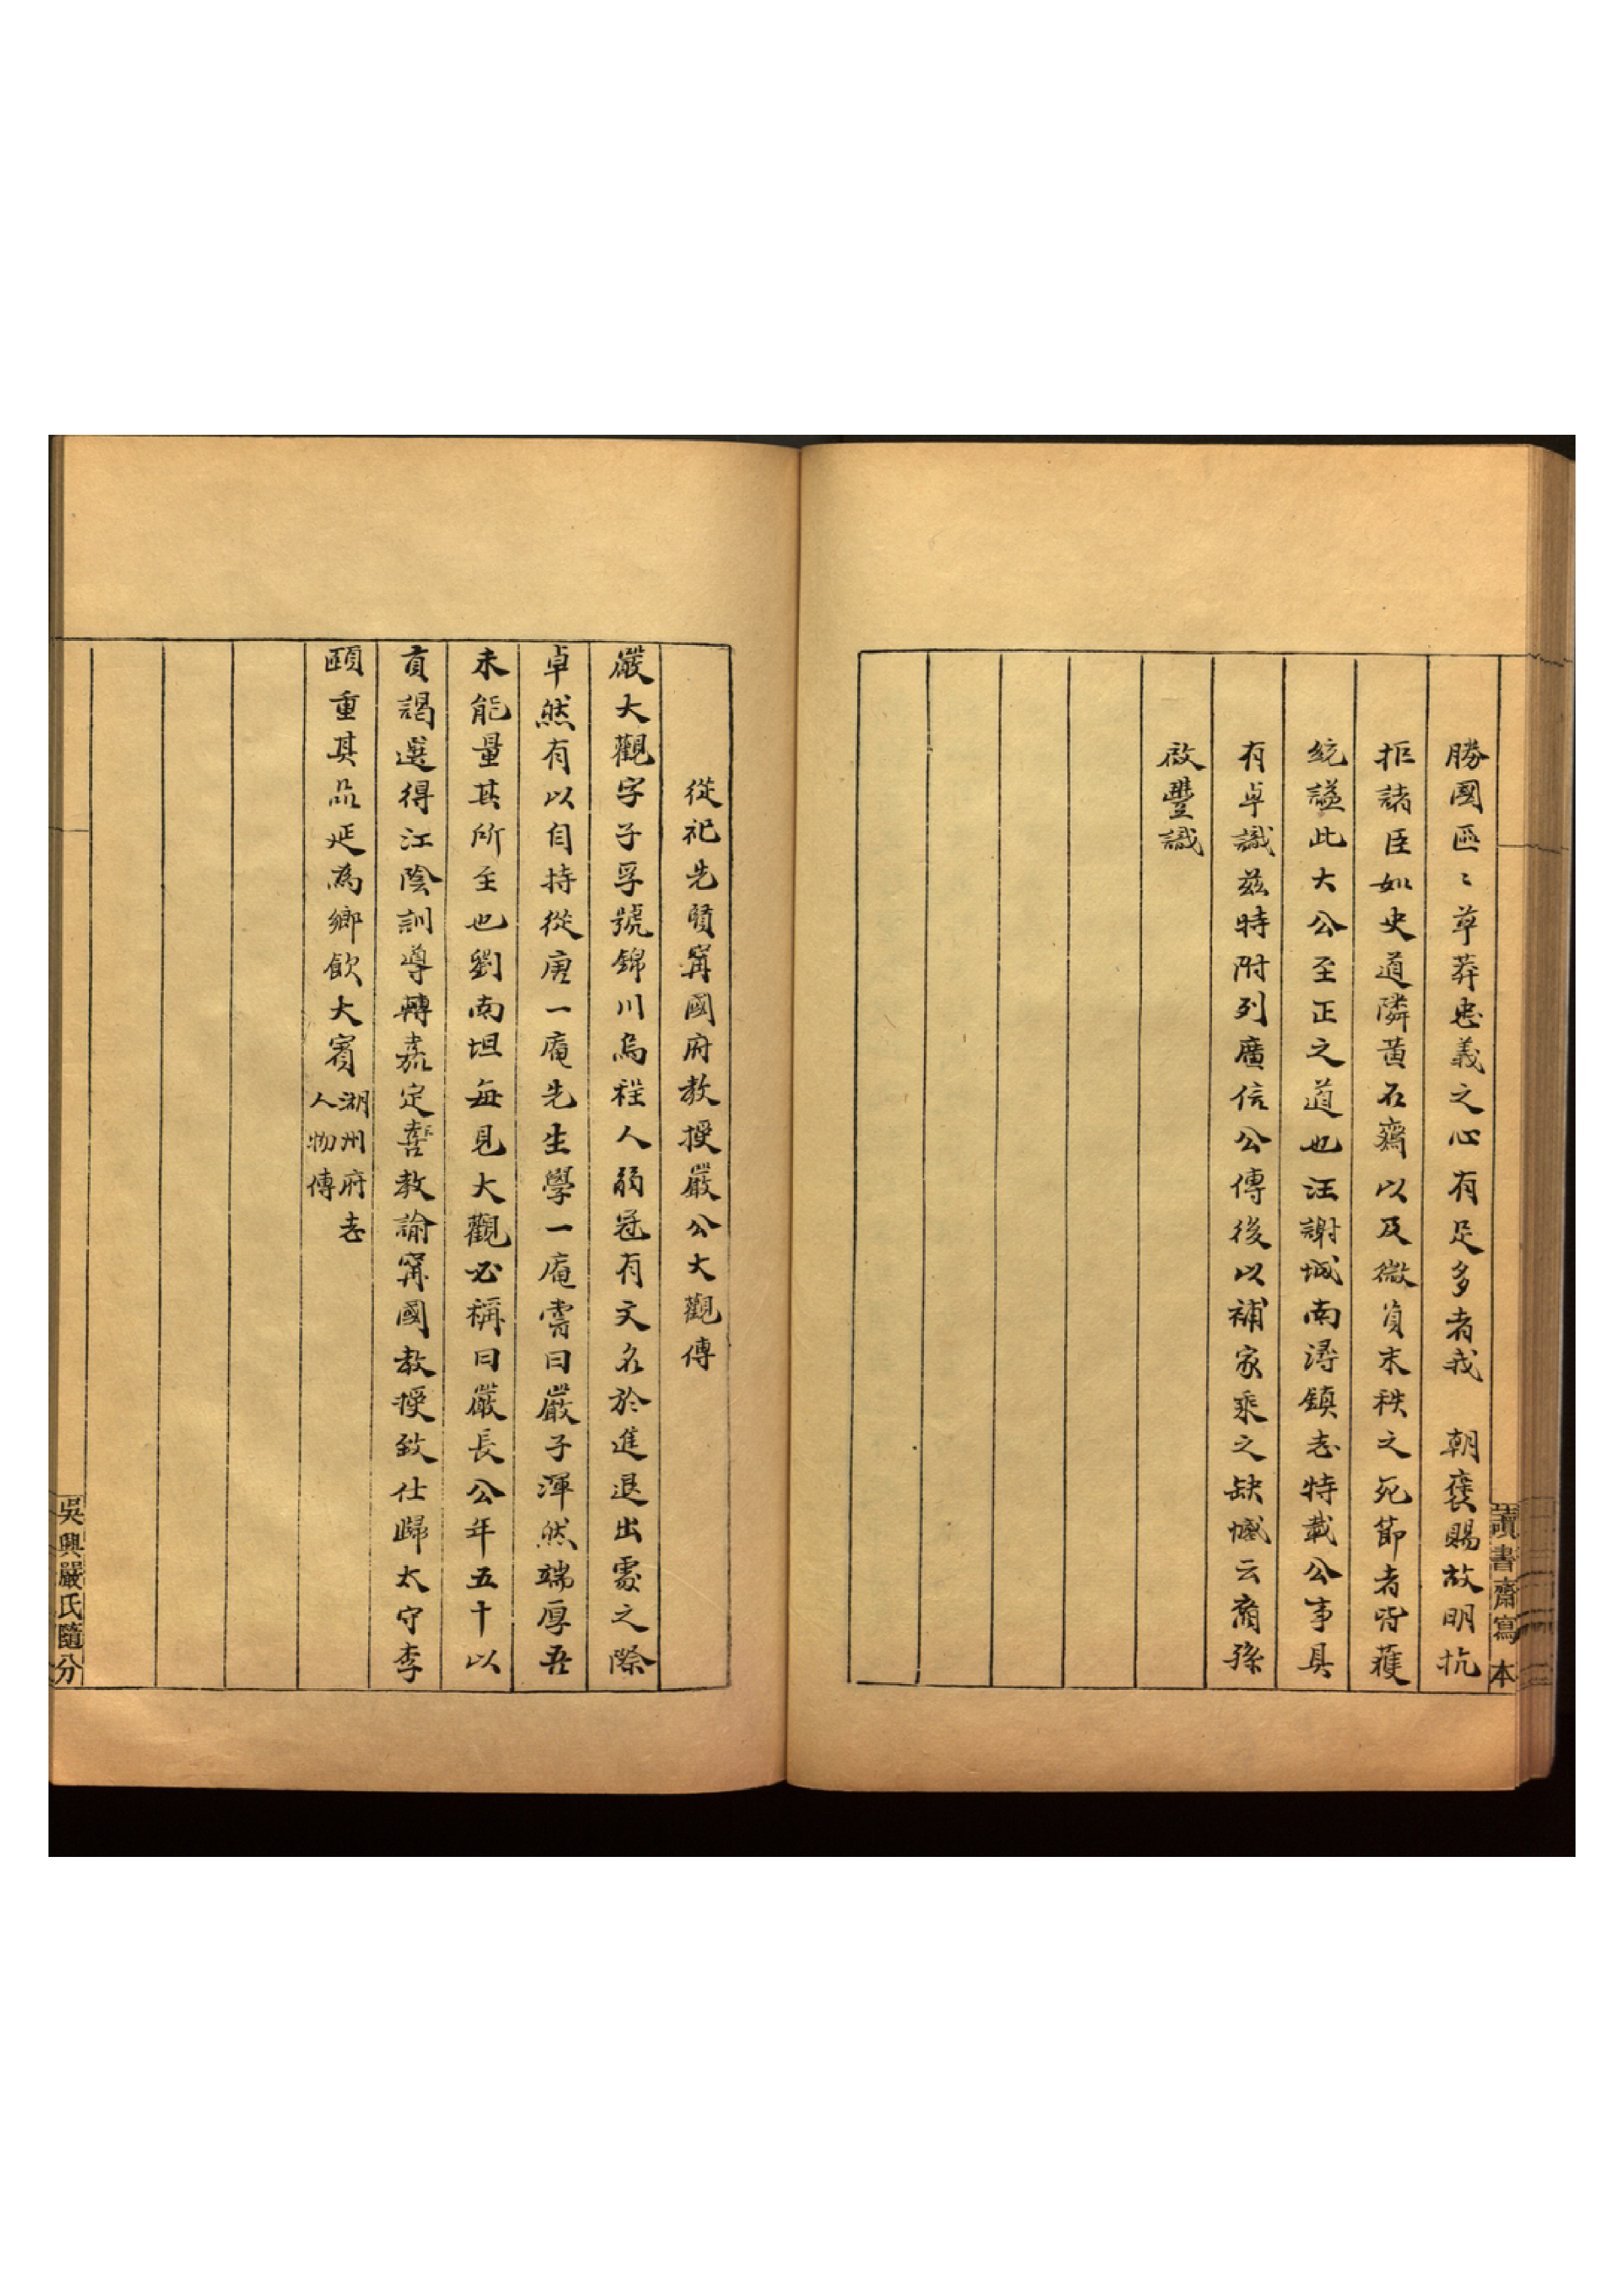 勝國區〻草莽忠義之心有足多者我　朝褒賜故明抗
拒諸臣如史道隣黃石齋以及微員末秩之死節者皆獲
統謚此大公至正之道也汪謝城南潯鎮志特載公事具
有卓識茲時附列廣信公傳後以補家乘之缺憾云裔孫
啟豐識
讀書齋寫本
從祀先賢甯國府教授嚴公大觀傳
嚴大觀字子孚號錦川烏程人弱冠有文名於進退出處之際
卓然有以自持從唐一庵先生學一庵嘗曰嚴子渾然端厚吾
未能量其所至也劉南坦每見大觀必稱曰嚴長公年五十以
貢謁選得江陰訓導轉嘉定善教諭甯國教授致仕歸太守李
頤重其品延為鄉飲大賓湖州府志
人物傳
吳興嚴氏隨分